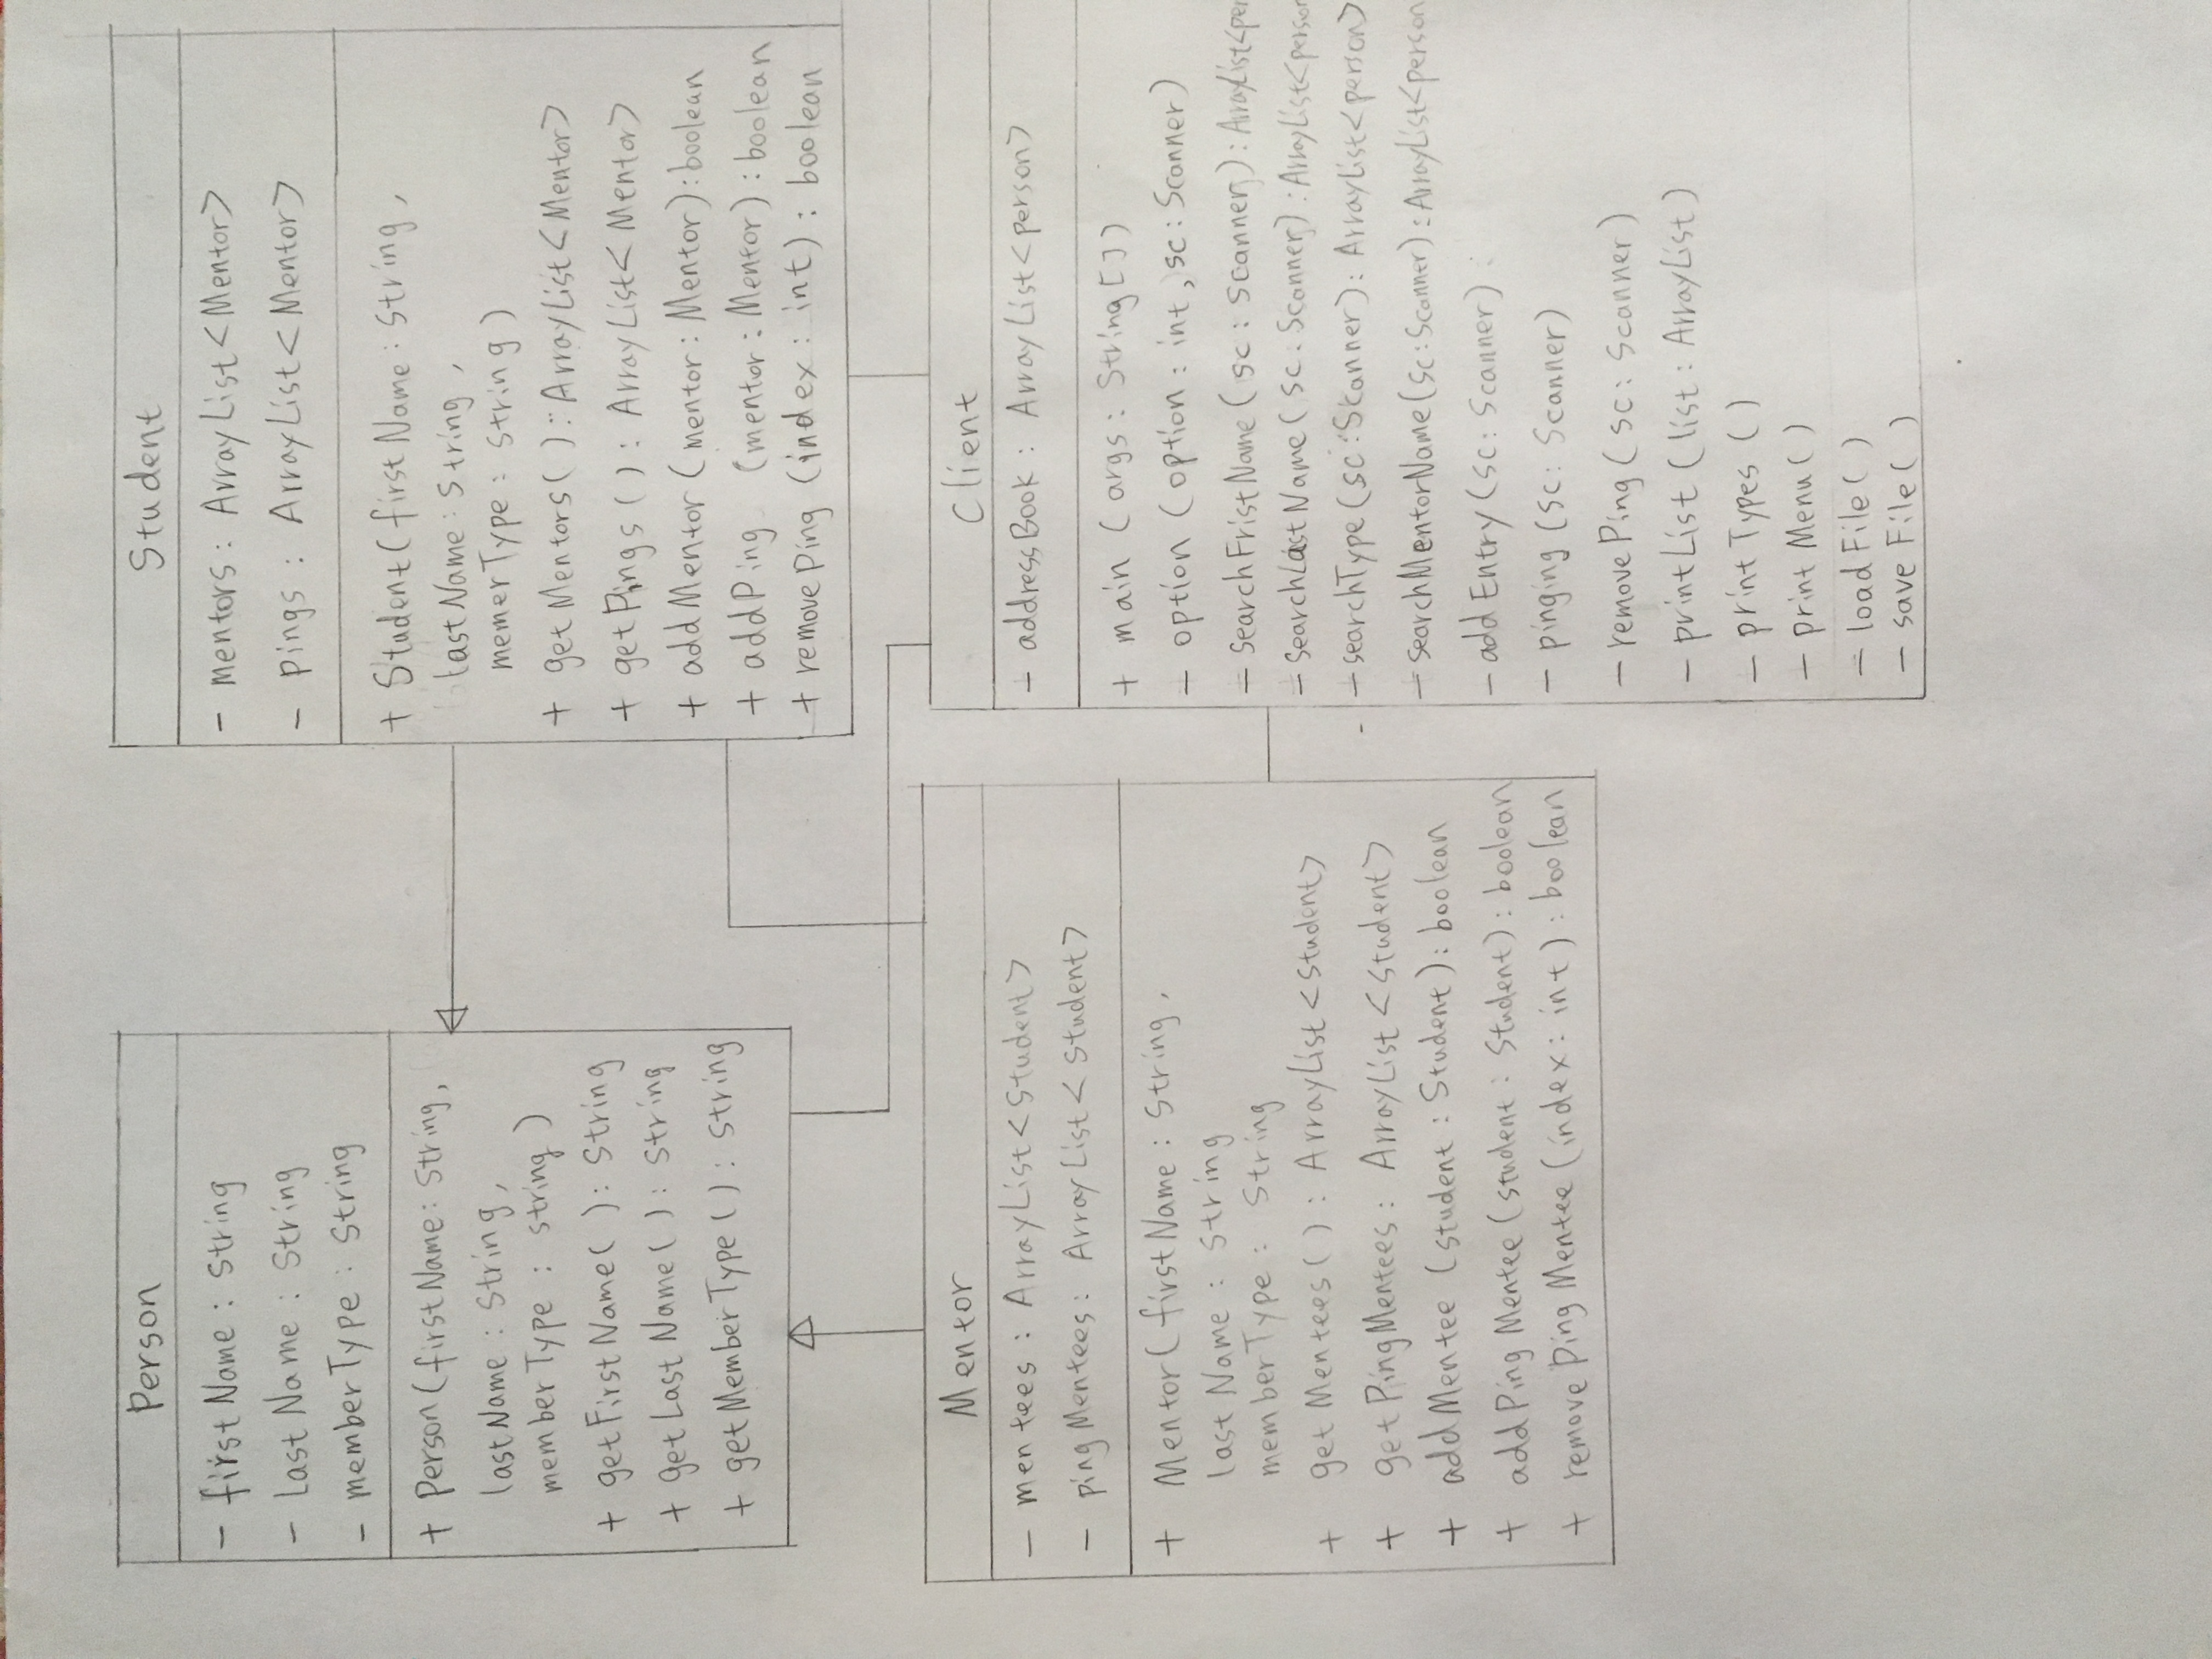 Person
- firstName : String
- lastName : String
- memberType : String
+ Person(firstName: String,
lastName : String,
memberType : String)
+ getFirstName( ): String
+ getLastName( ): String
+ getMemberType( ): String
Student
- mentors: ArrayList<Mentor>
- pings : ArrayList<Mentor>
+ Student(firstName: String,
lastName: String,
memerType: String)
+ getMentors( ): ArrayList<Mentor>
+ getPings ( ): ArrayList<Mentor>
+ addMentor (mentor: Mentor): boolean
+ addPing (mentor: Mentor): boolean
+ removePing (index: int): boolean
Mentor
- mentees: ArrayList<Student>
- pingMentees: ArrayList<Student>
+ Mentor( firstName: String,
lastName : String
memberType: String
+ getMentees( ): ArrayList<Student>
+ getPingMentees: ArrayList<Student>
+ addMentee (student: Student): boolean
+ addPingMentee (student: Student): boolean
+ removePingMentee (index: int): boolean
Client
- addressBook: ArrayList<person>
+ main (args: String[])
- option (option: int, sc: Scanner)
- searchFristName (sc: Scanner): ArrayList<per
- searchLastName (sc: Scanner): ArrayList<person
- searchType (sc: Scanner): ArrayList<person>
- searchMentorName(sc: Scanner): ArrayList<person
- addEntry (sc: Scanner) :
- pinging (sc: Scanner)
- removePing (sc: Scanner)
- printList (list: ArrayList)
- printTypes ( )
- printMenu ( )
- loadFile ( )
- saveFile ( )